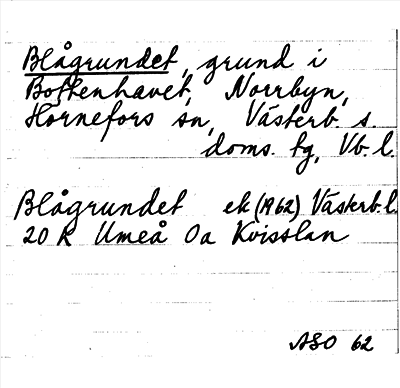 Blågrundet, grund i
Bottenhavet, Norrbyn,
Hörnefors sn, Västerb. s.
doms. tg, Vb. l.
Blågrundet ek (1962) Västerb. l.
20 K Umeå Oa Kvisslan
ASO 62